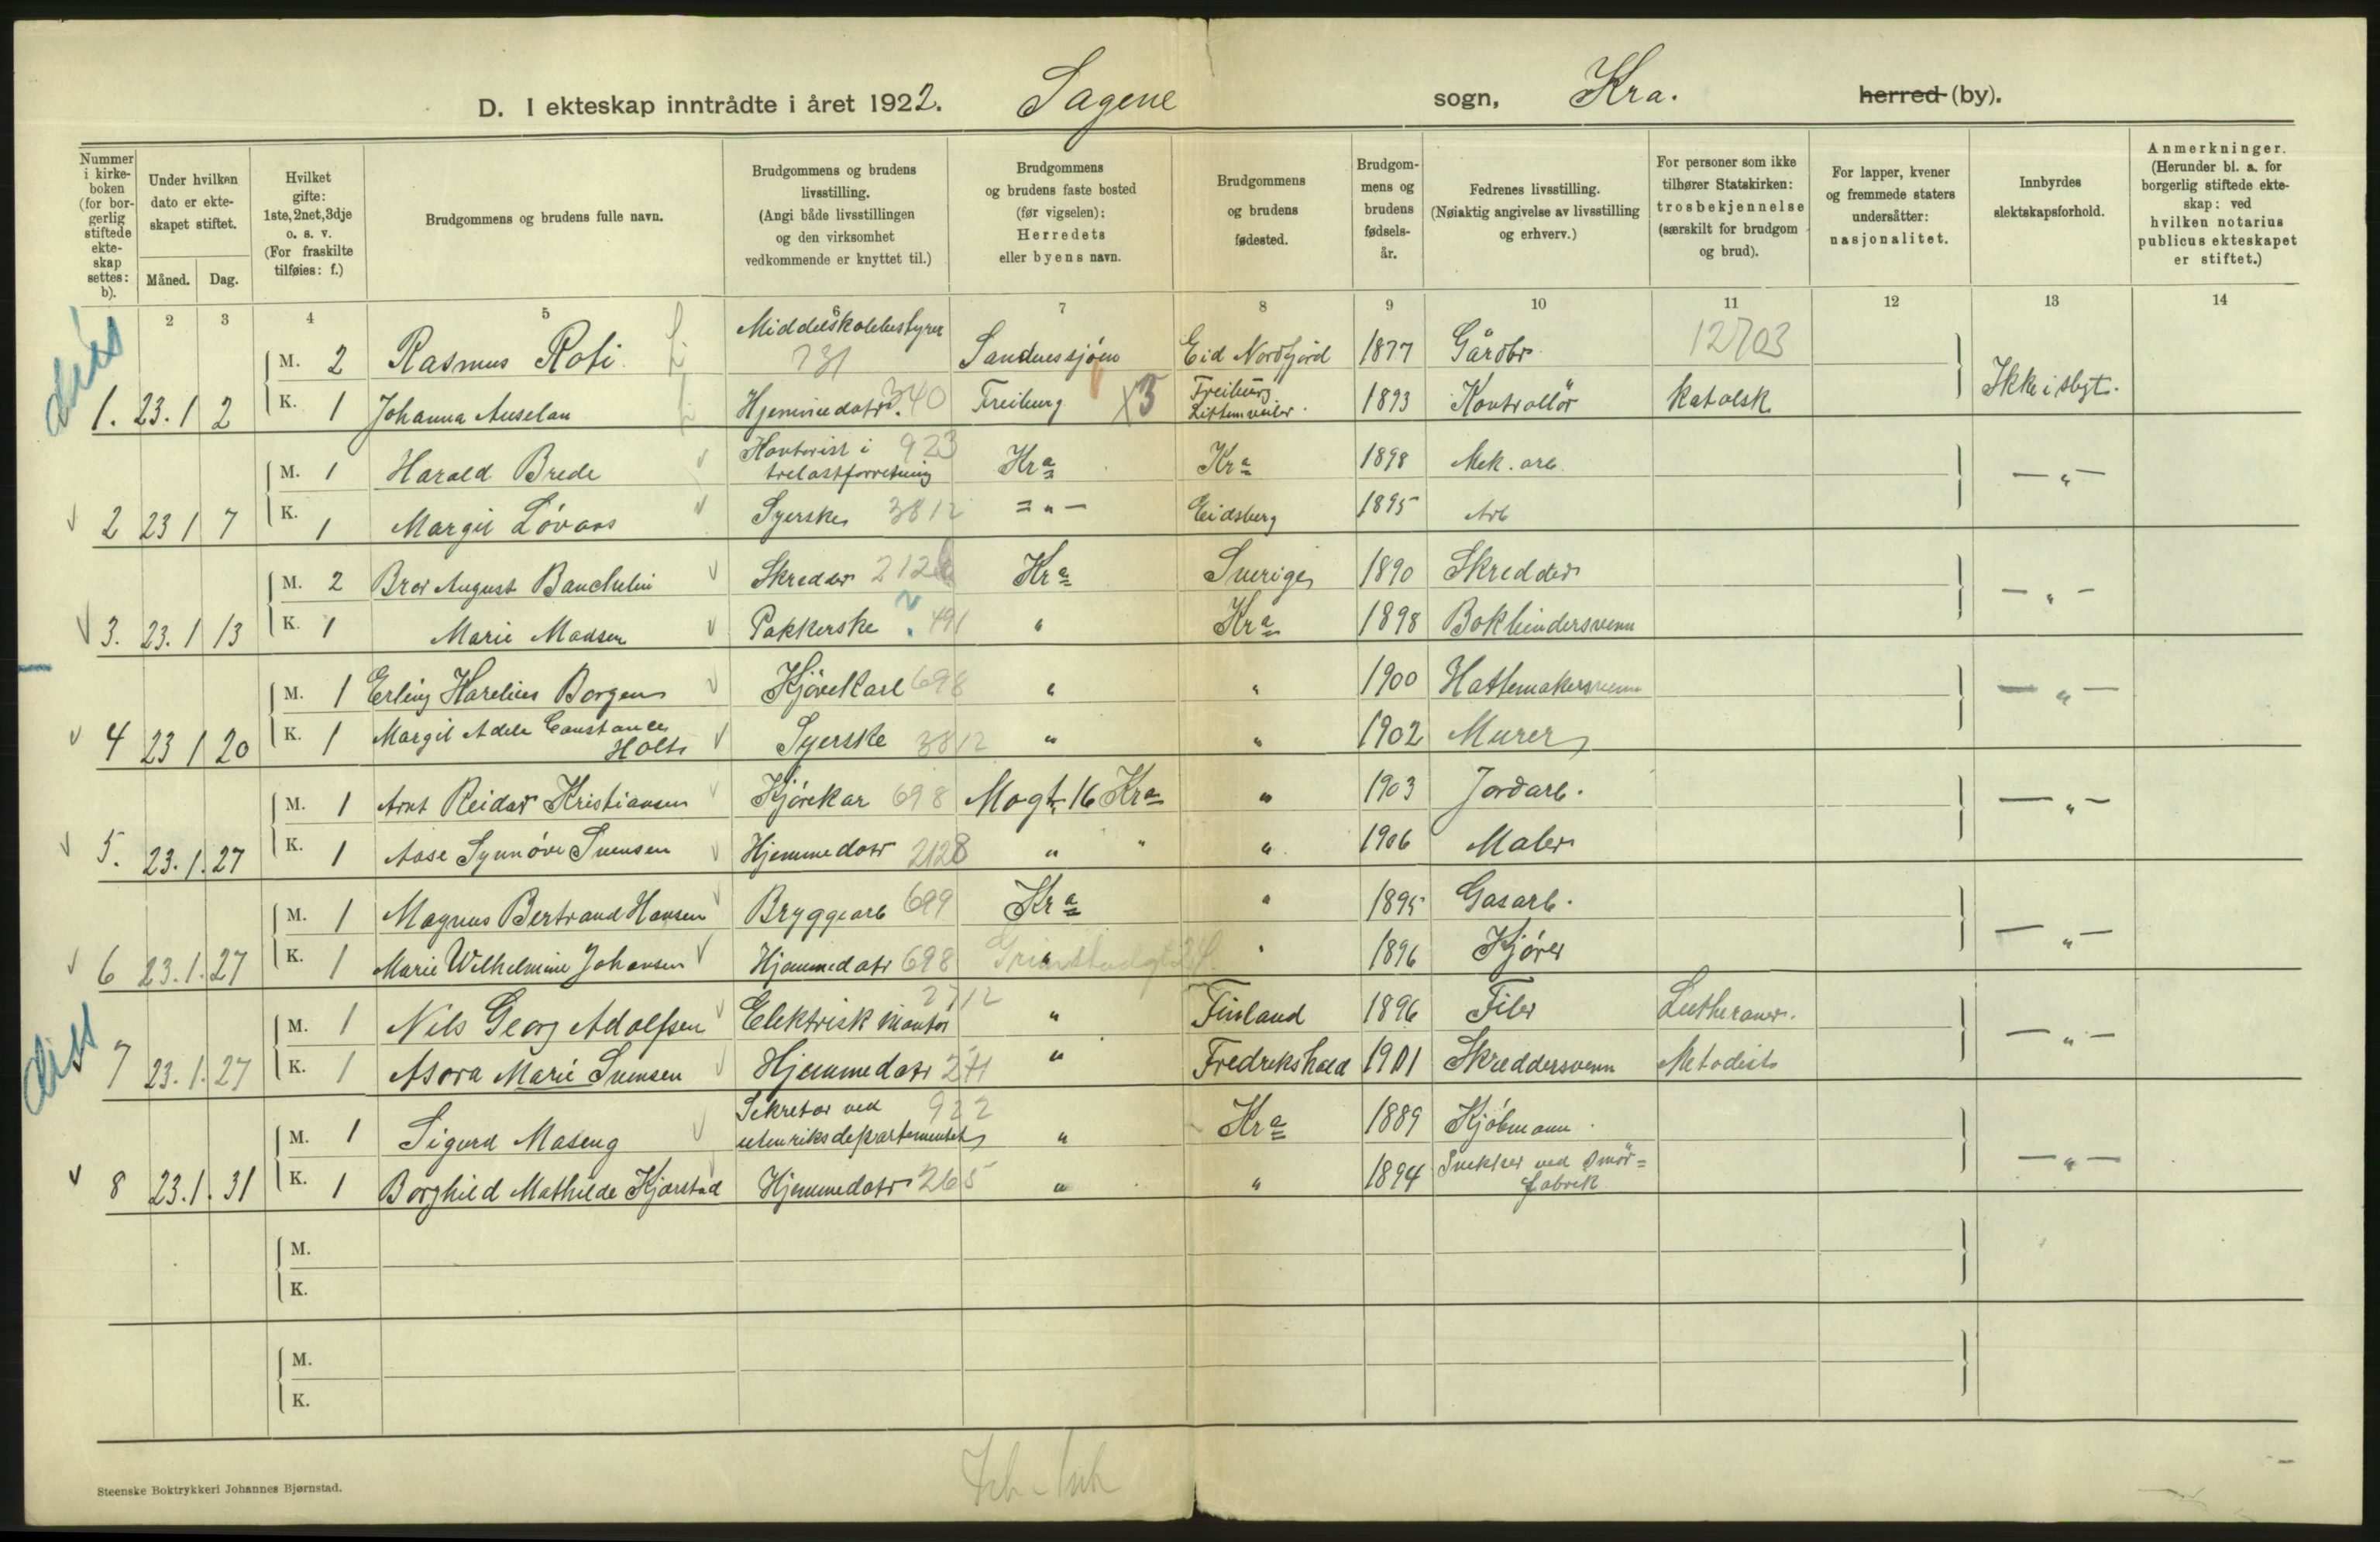 D. I ekteskap inntrådte i året 1922. Sagene sogn, Kra. herred (by).
Nummer i kirkeboken (for borgerlig stiftede ekteskap settes: b).
Under hvilken dato er ekteskapet stiftet.
Måned. Dag.
Hvilket gifte: 1ste, 2net, 3dje o. s. v. (For fraskilte tilføies: f.)
Brudgommens og brudens fulle navn.
Brudgommens og brudens livsstilling. (Angi både livsstillingen og den virksomhet vedkommende er knyttet til.)
Brudgommens og brudens faste bosted (før vigselen): Herredets eller byens navn.
Brudgommens og brudens fødested.
Brudgommens og brudens fødselsår.
Fedrenes livsstilling. (Nøiaktig angivelse av livsstilling og erhverv.)
For personer som ikke tilhører Statskirken: trosbekjennelse (særskilt for brudgom og brud).
For lapper, kvener og fremmede staters undersåtter: nasjonalitet.
Innbyrdes slektskapsforhold.
Anmerkninger. (Herunder bl. a. for borgerlig stiftede ekteskap: ved hvilken notarius publicus ekteskapet er stiftet.)
2 3 4 5 7 8 9 10 11 12 13 14
M. 2 Rasmus Roti Middelskolebestyrer 731 Sandnessjøen Eid Nordfjord 1877 Gårdbr. 12703
1. 23.1 2 K. 1 Johanna Anselan Hjemmedatr. 340 Freiburg X3 Freiburg Littenweiler. 1893 Kontrollör Katolsk Ikke i slegt.
M. 1 Harald Brede Kontorist i trelastforretning 923 Kra 1898 Mek. arb.
2 23 1 7 K. 1 Margit Lövaas Syerske 3812 = " - Eidsberg 1895 Arb — " —
M. 2 Bror August Bauchelin Skredder 212 Kra Sverige 1890 Skredder
3. 23.1 13 K. 1 Marie Madsen Pakkerske 491 " Kra 1898 Bokbindersvenn — " —
M. 1 Erling Harelius Borgen Kjørekarl 698 " " 1900 Hattemakersvenn
4 23 1 20 K. 1 Margit Adele Constance Holts Syerske 3812 " " 1902 Murer — " —
M. 1 Arnt Reidar Kristiansen Kjørekar 698 Mogt. 16 Kra " 1903 Jordarb.
5. 23.1.27 K. 1 Aase Synnöve Svensen Hjemmedatr 2128 " " " 1906 Maler — " —
M. 1 Magnus Bertrand Hansen Bryggearb 699 Kra " 1895 Gasarb.
6 23.1.27 K. 1 Marie Wilhelmine Johansen Hjemmedatr 698 " " 1896 Kjører — " —
M. 1 Nils Georg Adolfsen Elektrisk montör 2712 " Finland 1896 Filer Lutheraner.
7 23.1.27 K. 1 Asora Marie Svensen Hjemmedatr 241 " Fredrikshald 1901 Skreddersvenn Metodist — " —
M. 1 Sigurd Maseng Sekretær ved utenriksdepartementet 922 " Kra 1889 Kjöbmann.
8 23.1.31 K. 1 Borghild Mathilde Kjærstad Hjemmedatr 265 " " 1894 Snekker ved Smörfabrik — " —
M.
K.
M.
K.
Steenske Boktrykkeri Johannes Bjørnstad.